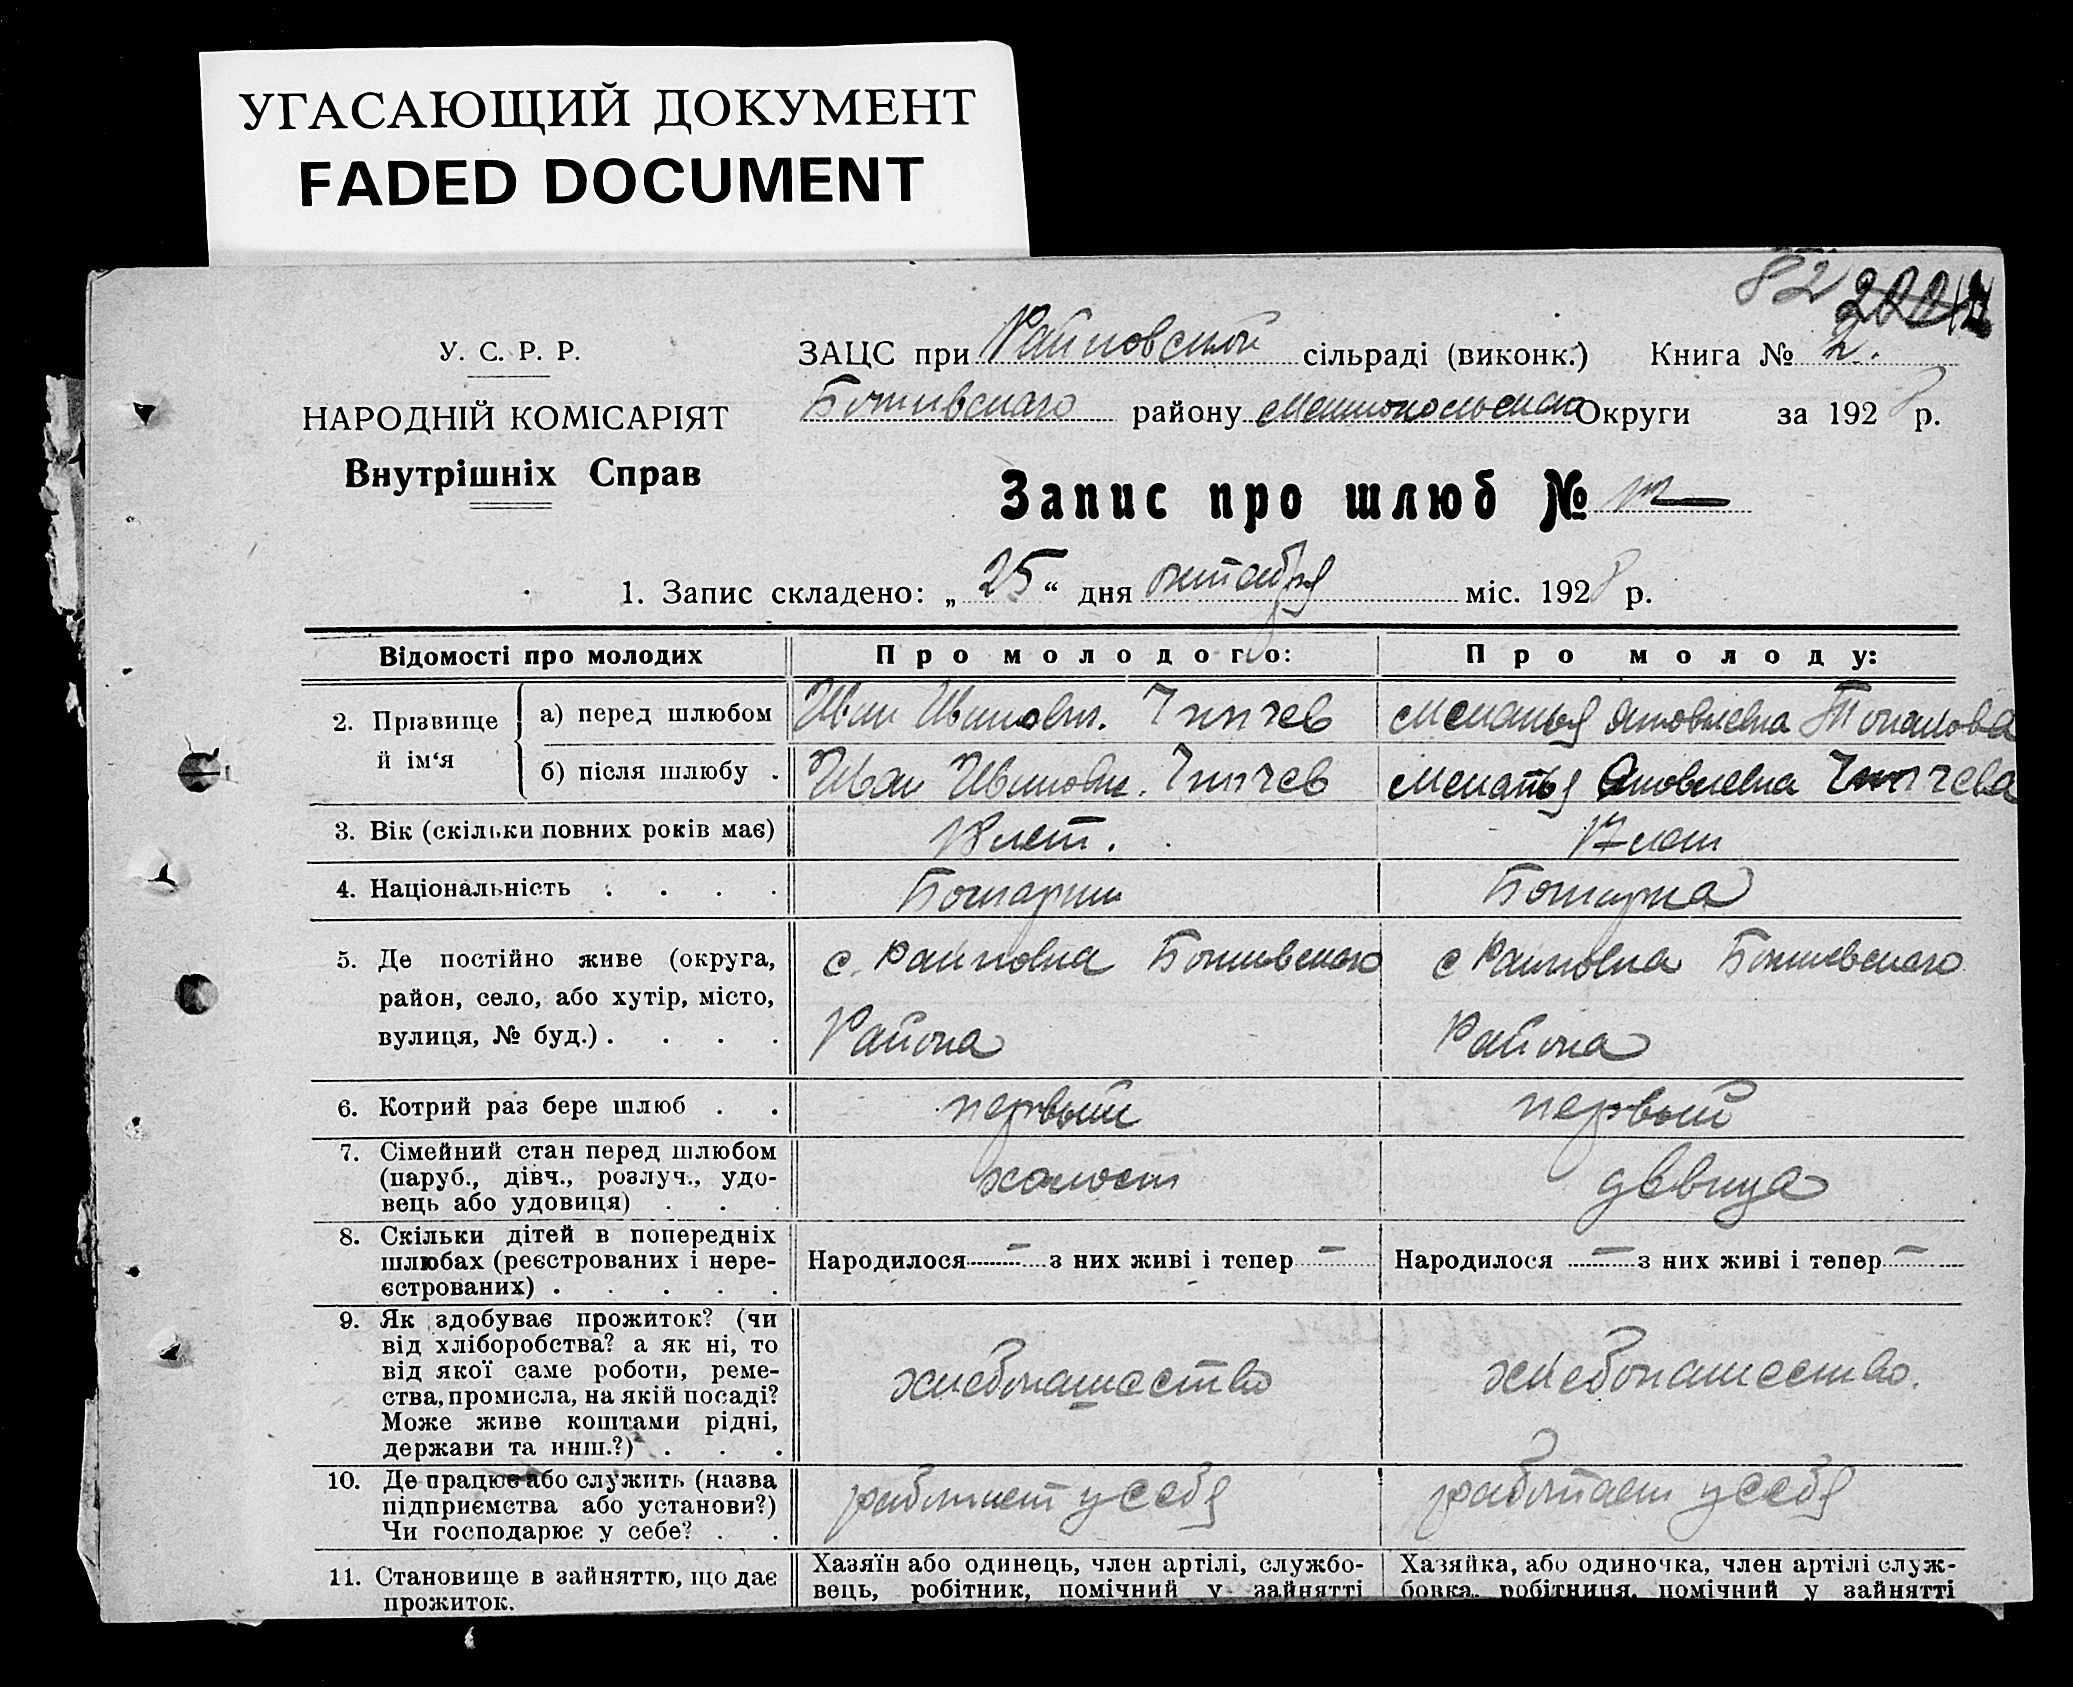 УГАСАЮЩИЙ ДОКУМЕНТ
FADED DOCUMENT
82
У. С. Р. Р.
НАРОДНІЙ КОМІСАРІЯТ
Внутрішніх Справ
ЗАЦС при Райновской сільраді (виконк.) Книга № 2.
району Округи за 1928 р.
Запис про шлюб №
1. Запис складено: „ 25 “ дня октября міс. 1928 р.
Відомості про молодих
Про молодого:
Про молоду:
2. Прізвище й ім‘я
а) перед шлюбом
Иван Иванович.
Меланья Яковлевна
б) після шлюбу .
Иван Иванович.
Меланья Яковлевна
3. Вік (скільки повних років має)
18 лет.
17 лет
4. Національність . . . .
Болгарин
Болгарка
5. Де постійно живе (округа,
район, село, або хутір, місто,
вулиця, № буд.) . . . .
с. Райновка
Района
с Райновка
Района
6. Котрий раз бере шлюб . .
первый
первый
7. Сімейний стан перед шлюбом
(паруб., дівч., розлуч., удо-
вець або удовиця) . . .
холост
девица
8. Скільки дітей в попередніх
шлюбах (реєстрованих і нере-
єстрованих) . . . . .
Народилося — з них живі і тепер —
Народилося — з них живі і тепер —
9. Як здобуває прожиток? (чи
від хліборобства? а як ні, то
від якої саме роботи, реме-
ства, промисла, на якій посаді?
Може живе коштами рідні,
держави та инш.?) . . .
хлебопашество
хлебопашество.
10. Де працює або служить (назва
підприємства або установи?)
Чи господарює у себе? . .
работает у себя
работает у себя
11. Становище в зайняттю, що дає
прожиток.
Хазяїн або одинець, член артілі, службо-
вець, робітник, помічний у зайнятті
Хазяйка, або одиночка, член артілі служ-
бовка, робітниця, помічний у зайнятті